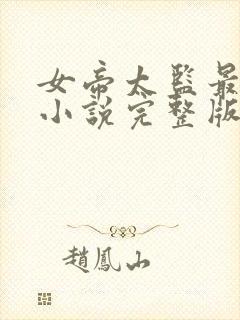 女帝太監最
小說完整版
趙鳳山